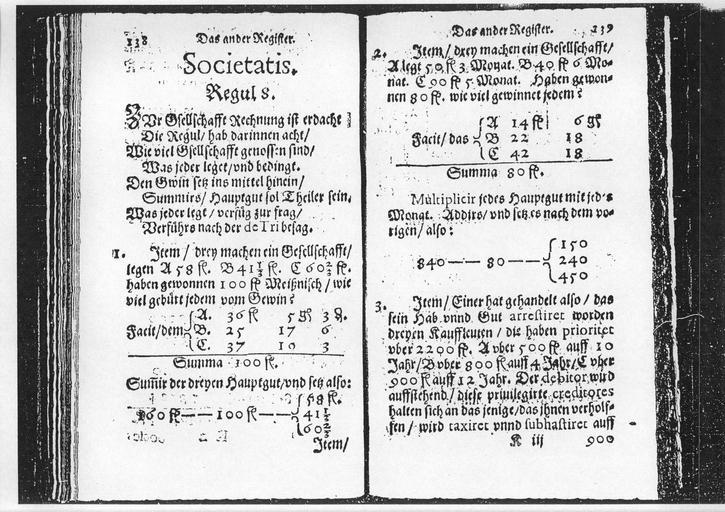 138 Das ander Register.
Societatis.
Regul 8.
ZVr Gsellschafft Rechnung ist erdacht
Die Regul/ hab darinnen acht/
Wie viel Gsellschafft genossen sind/
Was jeder leget/vnd bedingt.
Den Gwin setz ins mittel hinein/
Summirs/ Hauptgut sol Theiler sein.
Was jeder legt/ verfüg zur frag/
Verführs nach der de Tri besag.
1. Item/ drey machen ein Gesellschafft/
legen A 58 fl. B 41 1/2 fl. C 60 2/3 fl.
haben gewonnen 100 fl Meißnisch/ wie
viel gebürt jedem vom Gewin?
A. 36 fl 5 gl 3 g.
Facit/dem B. 25 17 6
C. 37 10 3
Summa 100 fl.
Sumir der dreyen Hauptgut/vnd setz also:
58 fl.
160 fl — 100 fl — 41 1/2
60 2/3
Item/
Das ander Register. 139
2. Item/ drey machen ein Gesellschafft/
A legt 50 fl 3 Monat. B 40 fl 6 Mo-
nat. C 90 fl 5 Monat. Haben gewon-
nen 80 fl. wie viel gewinnet jedem?
A 14 fl 6 gl
Facit/ das B 22 18
C 42 18
Summa 80 fl.
Multiplicir jedes Hauptgut mit jeds
Monat. Addirs/ vnd setz es nach dem vo-
rigen/ also:
150
840 — 80 — 240
450
3. Item/ Einer hat gehandelt also/ das
sein Hab vnnd Gut arrestiret worden
dreyen Kauffleuten/ die haben prioritet
vber 2200 fl. A vber 500 fl auff 10
Jahr/ B vber 800 fl auff 4 Jahr/ C vber
900 fl auff 12 Jahr. Der debitor wird
auffstehend/ diese priuilegirte creditores
halten sich an das jenige/das jhnen verholf-
fen/ wird taxiret vnnd subhastiret auff
K iij 900